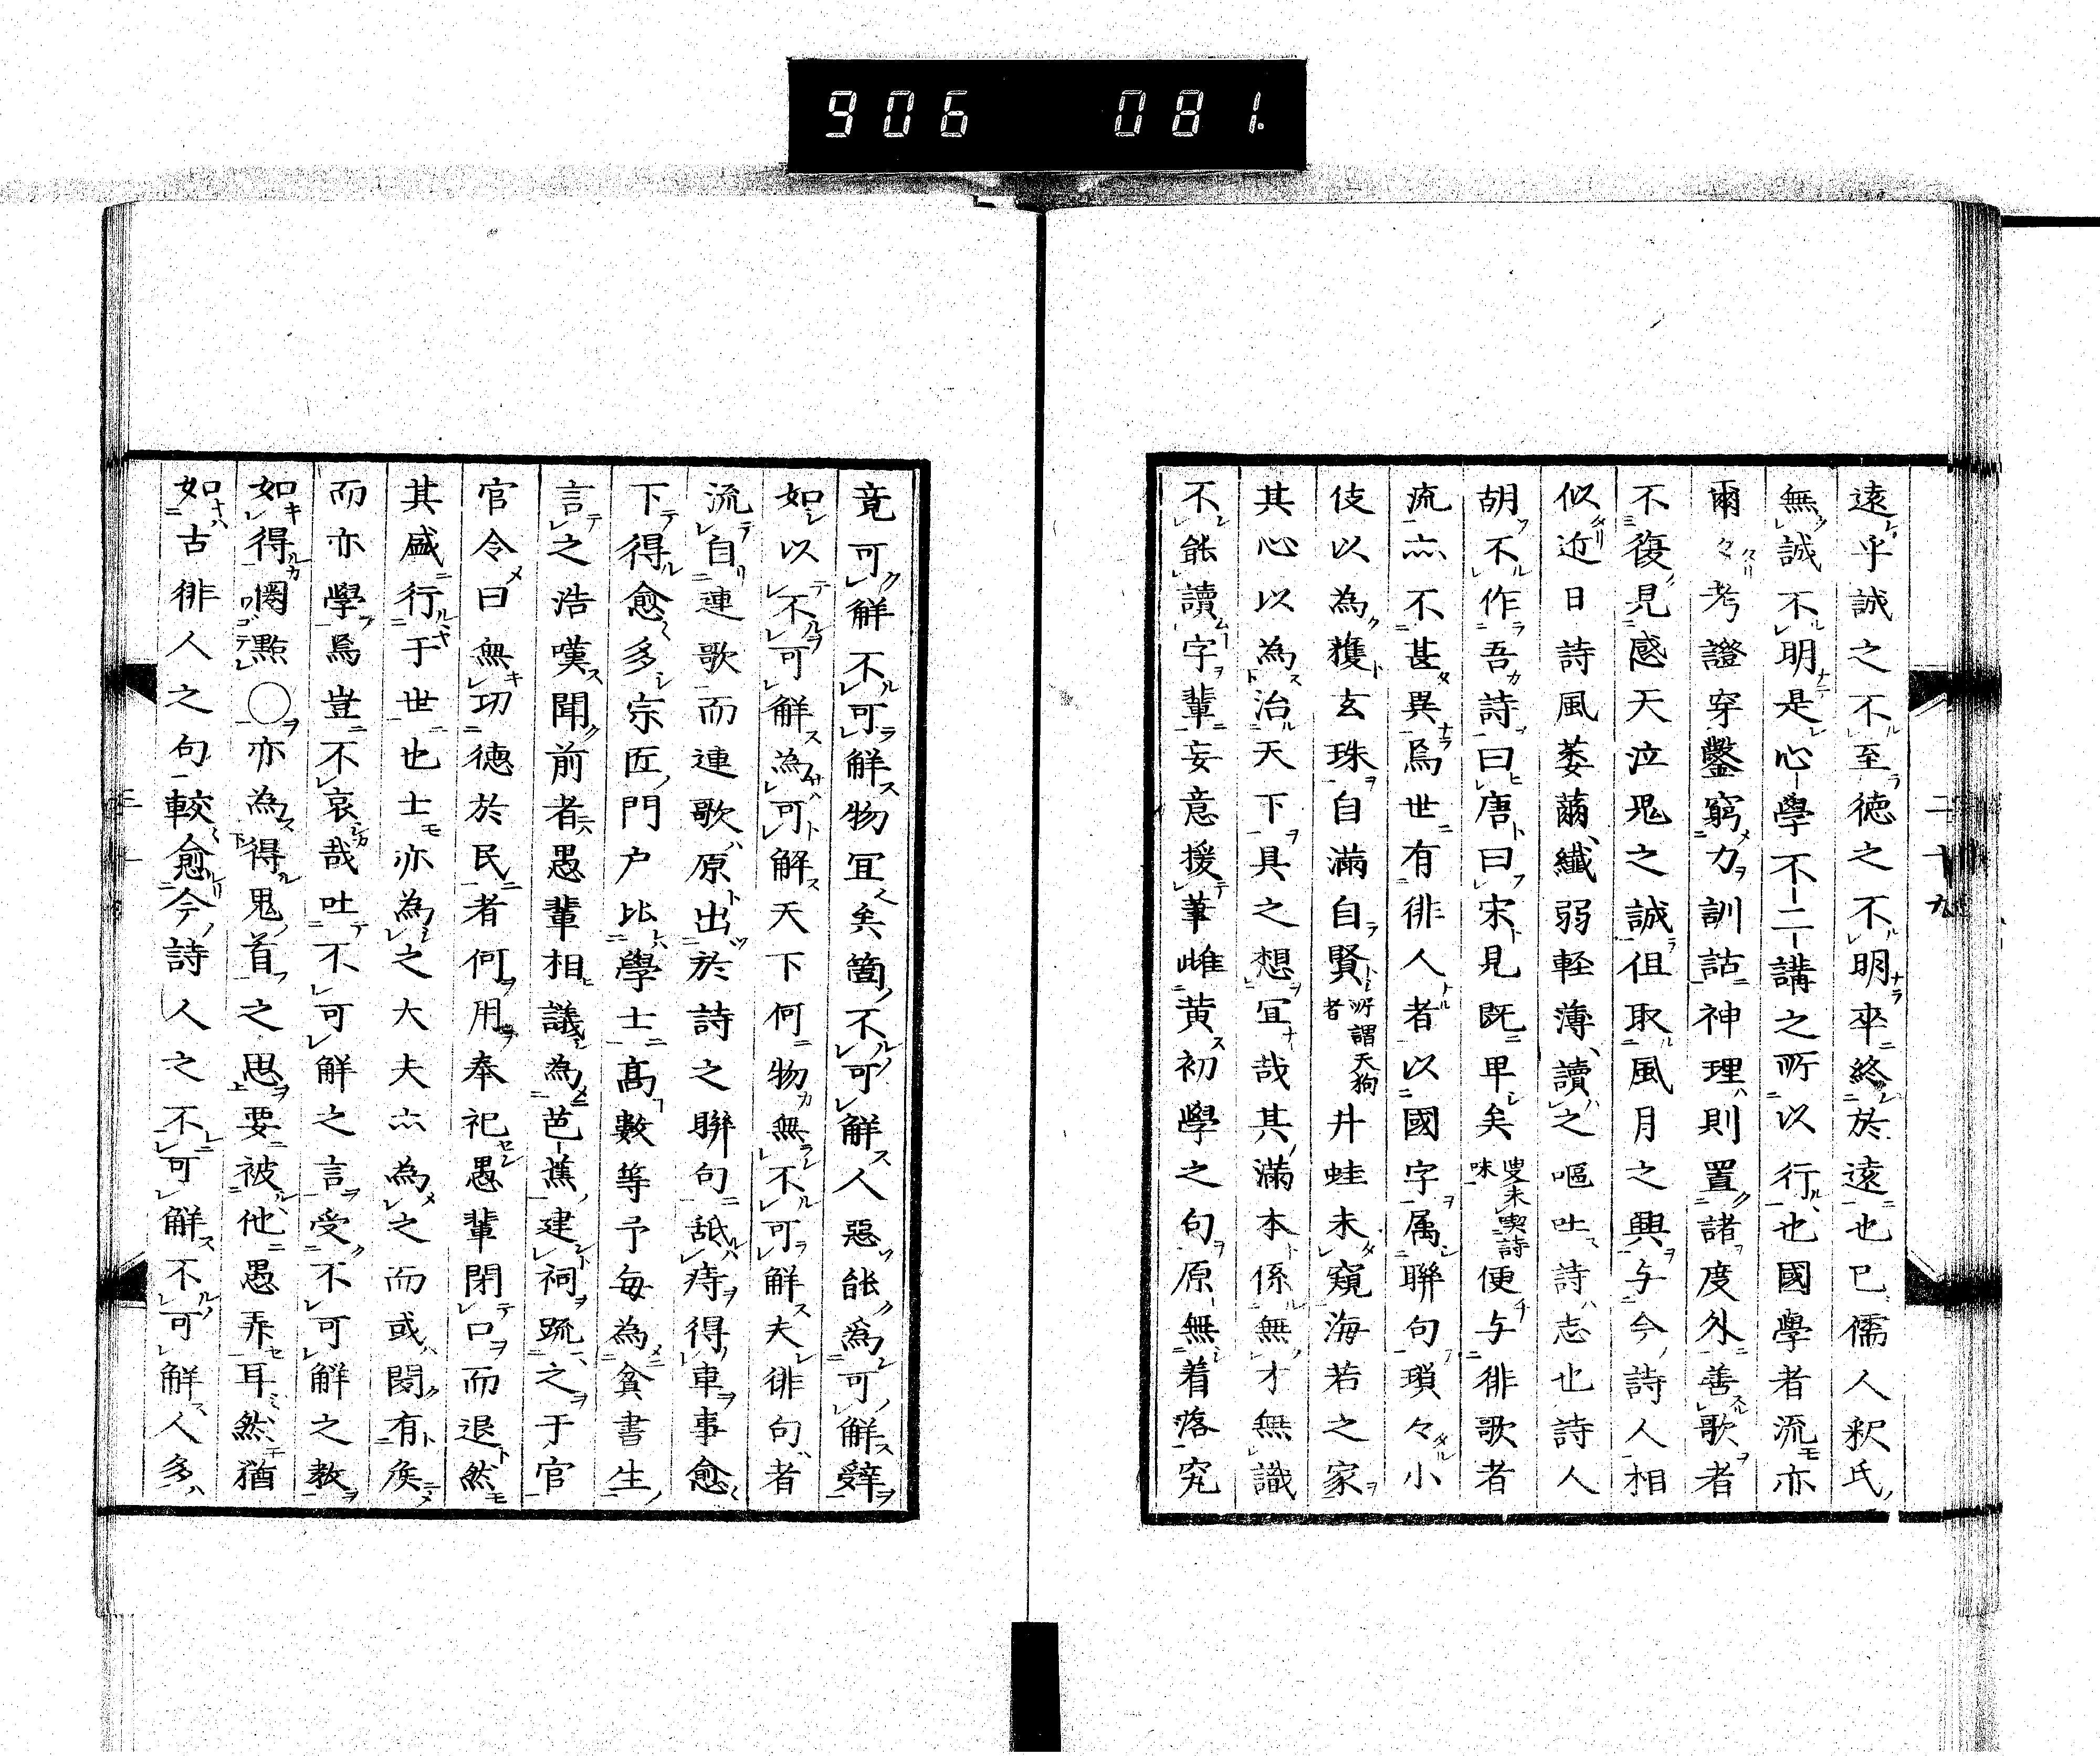 906 081.
二十九
遠乎誠之不至徳之不明卒終於遠也已儒人釈氏
無誠不明是心學不二講之所以行也國學者流亦
爾々考證穿鑿窮力訓詁神理則置諸度外善歌者
不復見感天泣鬼之誠徂取風月之興与今詩人相
似近日詩風萎薾纎弱軽薄讀之嘔吐詩志也詩人
胡不作吾詩曰唐曰宋見既卑矣叟未喫詩味便与俳歌者
流亦不甚異焉世有俳人者以國字属聯句瑣々小
伎以為獲玄珠自滿自賢所謂天狗者井蛙未窺海若之家
其心以為治天下具之想冝哉其滿本係無才無識
不能讀字輩妄意援筆雌黄初學之句原無着落究
竟可解不可解物冝矣箇不可解人惡能為可解辭
如以不可解為可解天下何物無不可解夫俳句者
流自連歌而連歌原出於詩之聯句舐痔得車事愈
下得愈多宗匠門户比學士高數等予每為貧書生
言之浩嘆聞前者愚輩相議為芭蕉建祠䟽之于官
官令曰無功德於民者何用奉祀愚輩閉口而退然
其盛行于世也士亦為之大夫亦為之而或閲有矦
而亦學焉豈不哀哉吐不可解之言受不可解之教
如得圏點〇亦為得鬼首之思要被他愚弄耳然猶
如古俳人之句較愈今詩人之不可解不可解人多